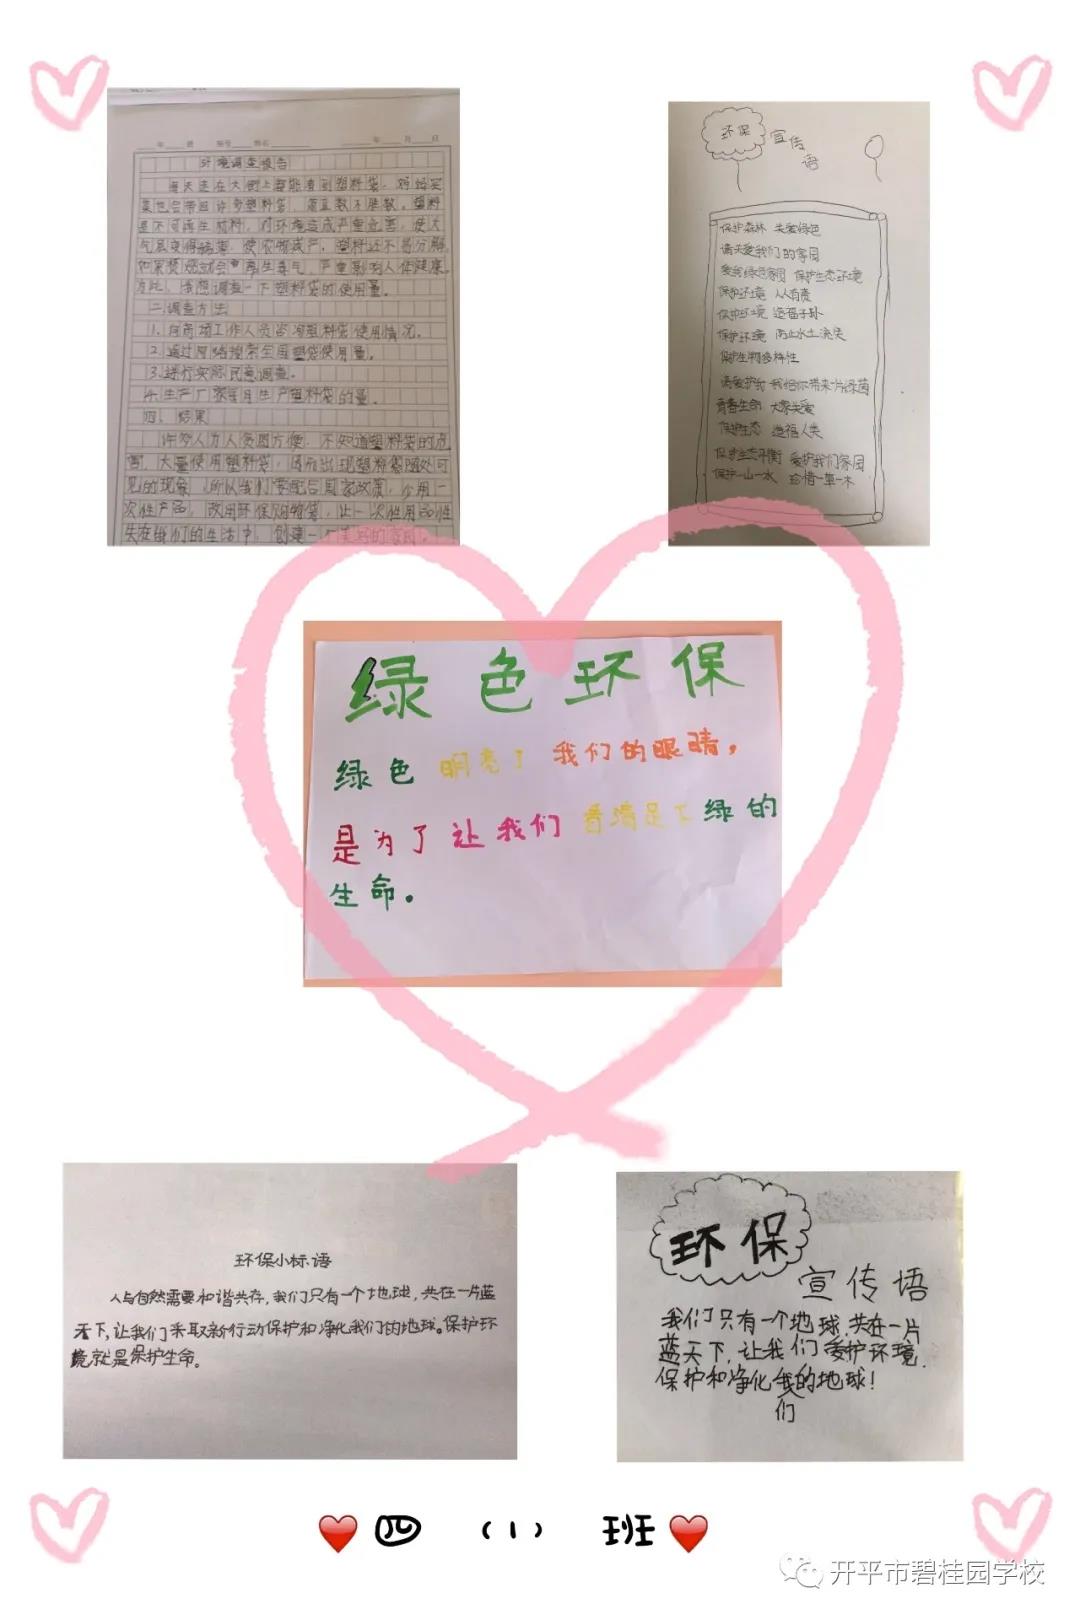 环境调查报告
每天走在大街上都能看到塑料袋,妈妈买
菜也会带回许多塑料袋,简直数不胜数。塑料
是不可再生材料,对环境造成严重危害,使大
气层变得稀薄,使农物减产,塑料还不易分解,
如果焚烧就会产生毒气,严重影响人体健康。
为此,我想调查一下塑料袋的使用量。
二、调查方法
1.向商场工作人员咨询塑料袋使用情况。
2.通过网络搜索全国塑袋使用量。
3.进行实际民意调查。
4.生产厂家每月生产塑料袋的量。
四、结果
许多人为人贪图方便,不知道塑料袋的危
害,大量使用塑料袋,因而出现塑料袋随处可
见的现象,所以我们要配合国家政策,少用一
次性产品,改用环保购物袋,让一次性用品消
失在我们的生活中,创建一个美好的家园。
环保
宣传语
保护森林 关爱绿色
请关爱我们的家园
爱我绿色家园 保护生态环境
保护环境 人人有责
保护环境 造福子孙
保护环境 防止水土流失
保护生物多样性
请爱护我 我给你带来一片绿茵
青春生命 大家关爱
保护生态 造福人类
保护生态平衡 爱护我们家园
保护一山一水 珍惜一草一木
绿色环保
绿色明亮了我们的眼睛,
是为了让我们看清足下绿的
生命。
环保小标语
人与自然需要和谐共存,我们只有一个地球,共在一片蓝
天下,让我们采取新行动保护和净化我们的地球。保护环
境就是保护生命。
环保
宣传语
我们只有一个地球,共在一片
蓝天下,让我们爱护环境,
保护和净化我的地球!
们
四 (1) 班
开平市碧桂园学校